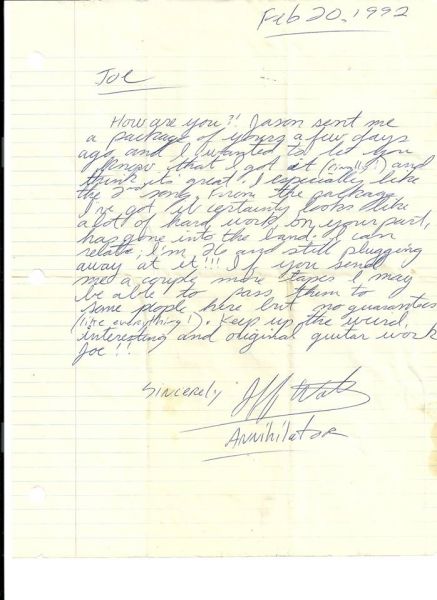 Feb 20, 1992
Joe
How are you?! Jason sent me
a package of yours a few days
ago and I wanted to let you
know that I got it (finally!) and
think it's great! I especially like
the 2nd song. From the package
I've got it certainly looks like
a lot of hard work on your part,
has gone into the band. I can
relate; I'm 26 and still plugging
away at it!!! If you send
me a couple more tapes I may
be able to pass them to
some people here but no guarantees
(like everything!). Keep up the weird,
interesting and original guitar work
Joe!!
Sincerely Jeff Waters
Annihilator